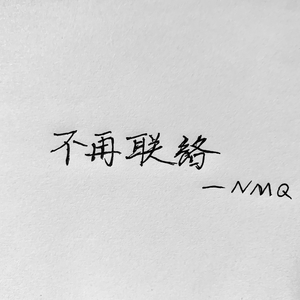 不再联络
—NMQ